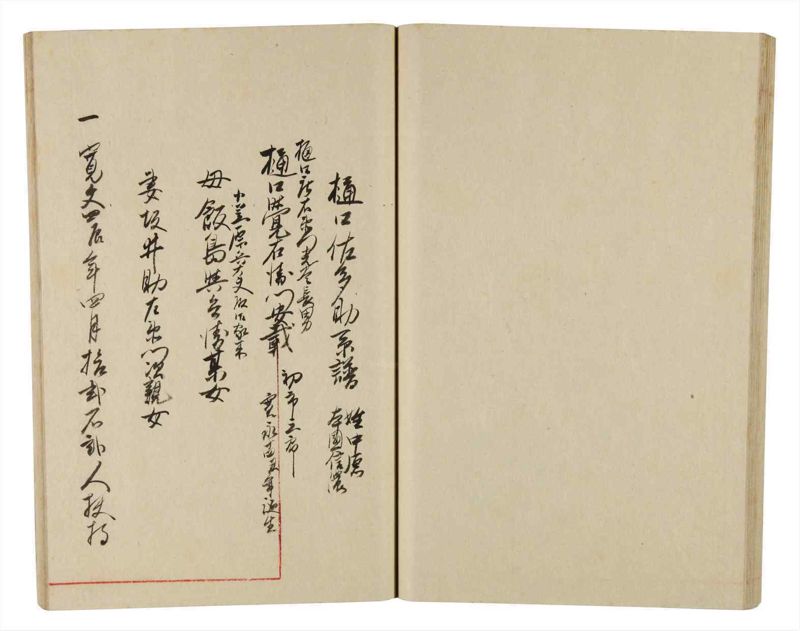 樋口佐多助系譜
姓中原
本国信濃
樋口
長男
樋口覚右衛門安載
初市三郎
寛永 年誕生
小笠原 家来
母飯島與兵衛某女
妻坂井助左衛門頭親女
一寛文四辰年四月拾弐石 人扶持